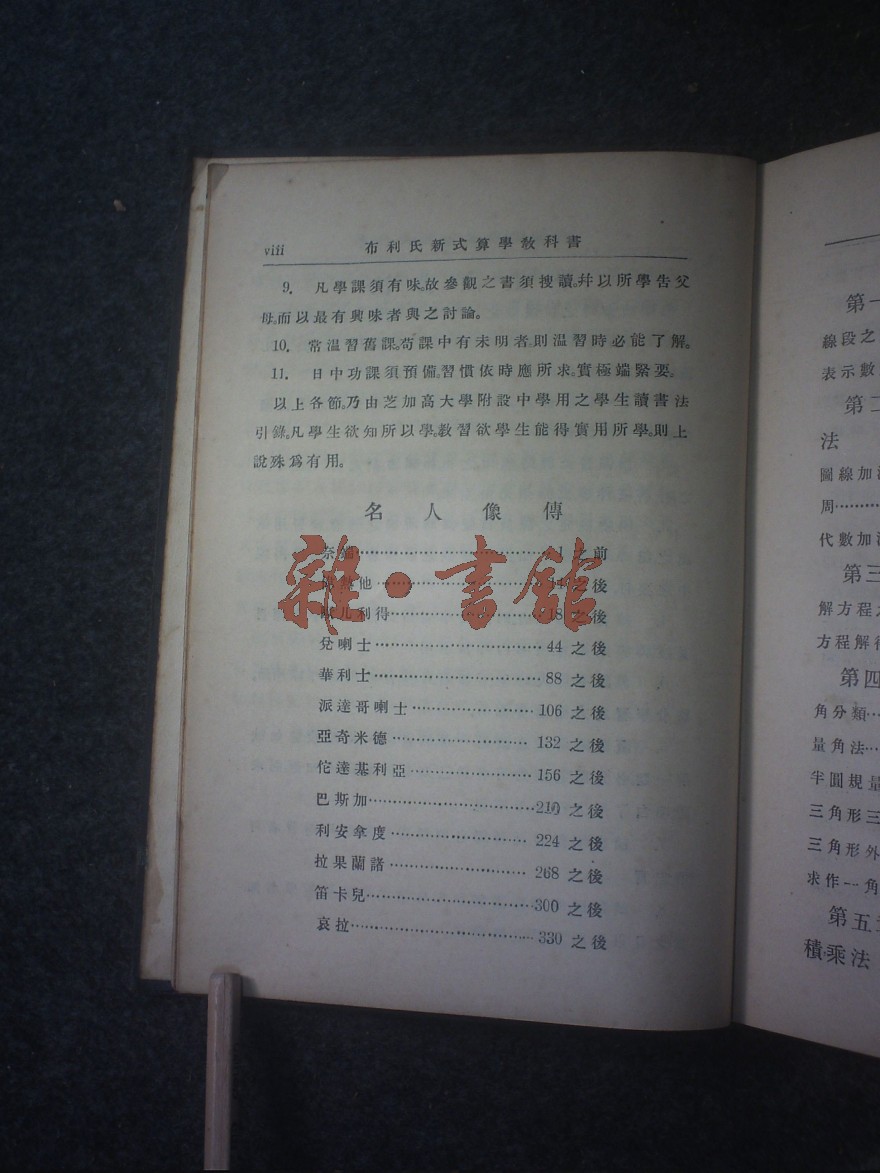 viii 布利氏新式算學敎科書
9. 凡學課須有味。故參觀之書須搜讀。幷以所學告父
母。而以最有興味者與之討論。
10. 常温習舊課。苟課中有未明者，則温習時必能了解。
11. 日中功課須預備。習慣依時應所求，實極端緊要。
以上各節。乃由芝加高大學附設中學用之學生讀書法
引錄。凡學生欲知所以學。敎習欲學生能得實用所學。則上
說殊爲有用。
名人像傳
奈端 1之前
熱他 14之後
歐几利得 18之後
兌喇士 44之後
華利士 88之後
派達哥喇士 106之後
亞奇米德 132之後
佗達基利亞 156之後
巴斯加 210之後
利安拿度 224之後
拉果蘭諸 268之後
笛卡兒 300之後
哀拉 330之後
雜·書館
第一
線段之
表示數
第二
法
圖線加
周
代數加
第三
解方程
方程解
第四
角分類
量角法
半圓規量
三角形三
三角形外
求作一角
第五
積.乘法